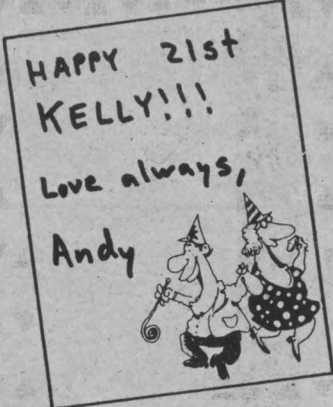 HAPPY 21st
KELLY!!!
Love always,
Andy